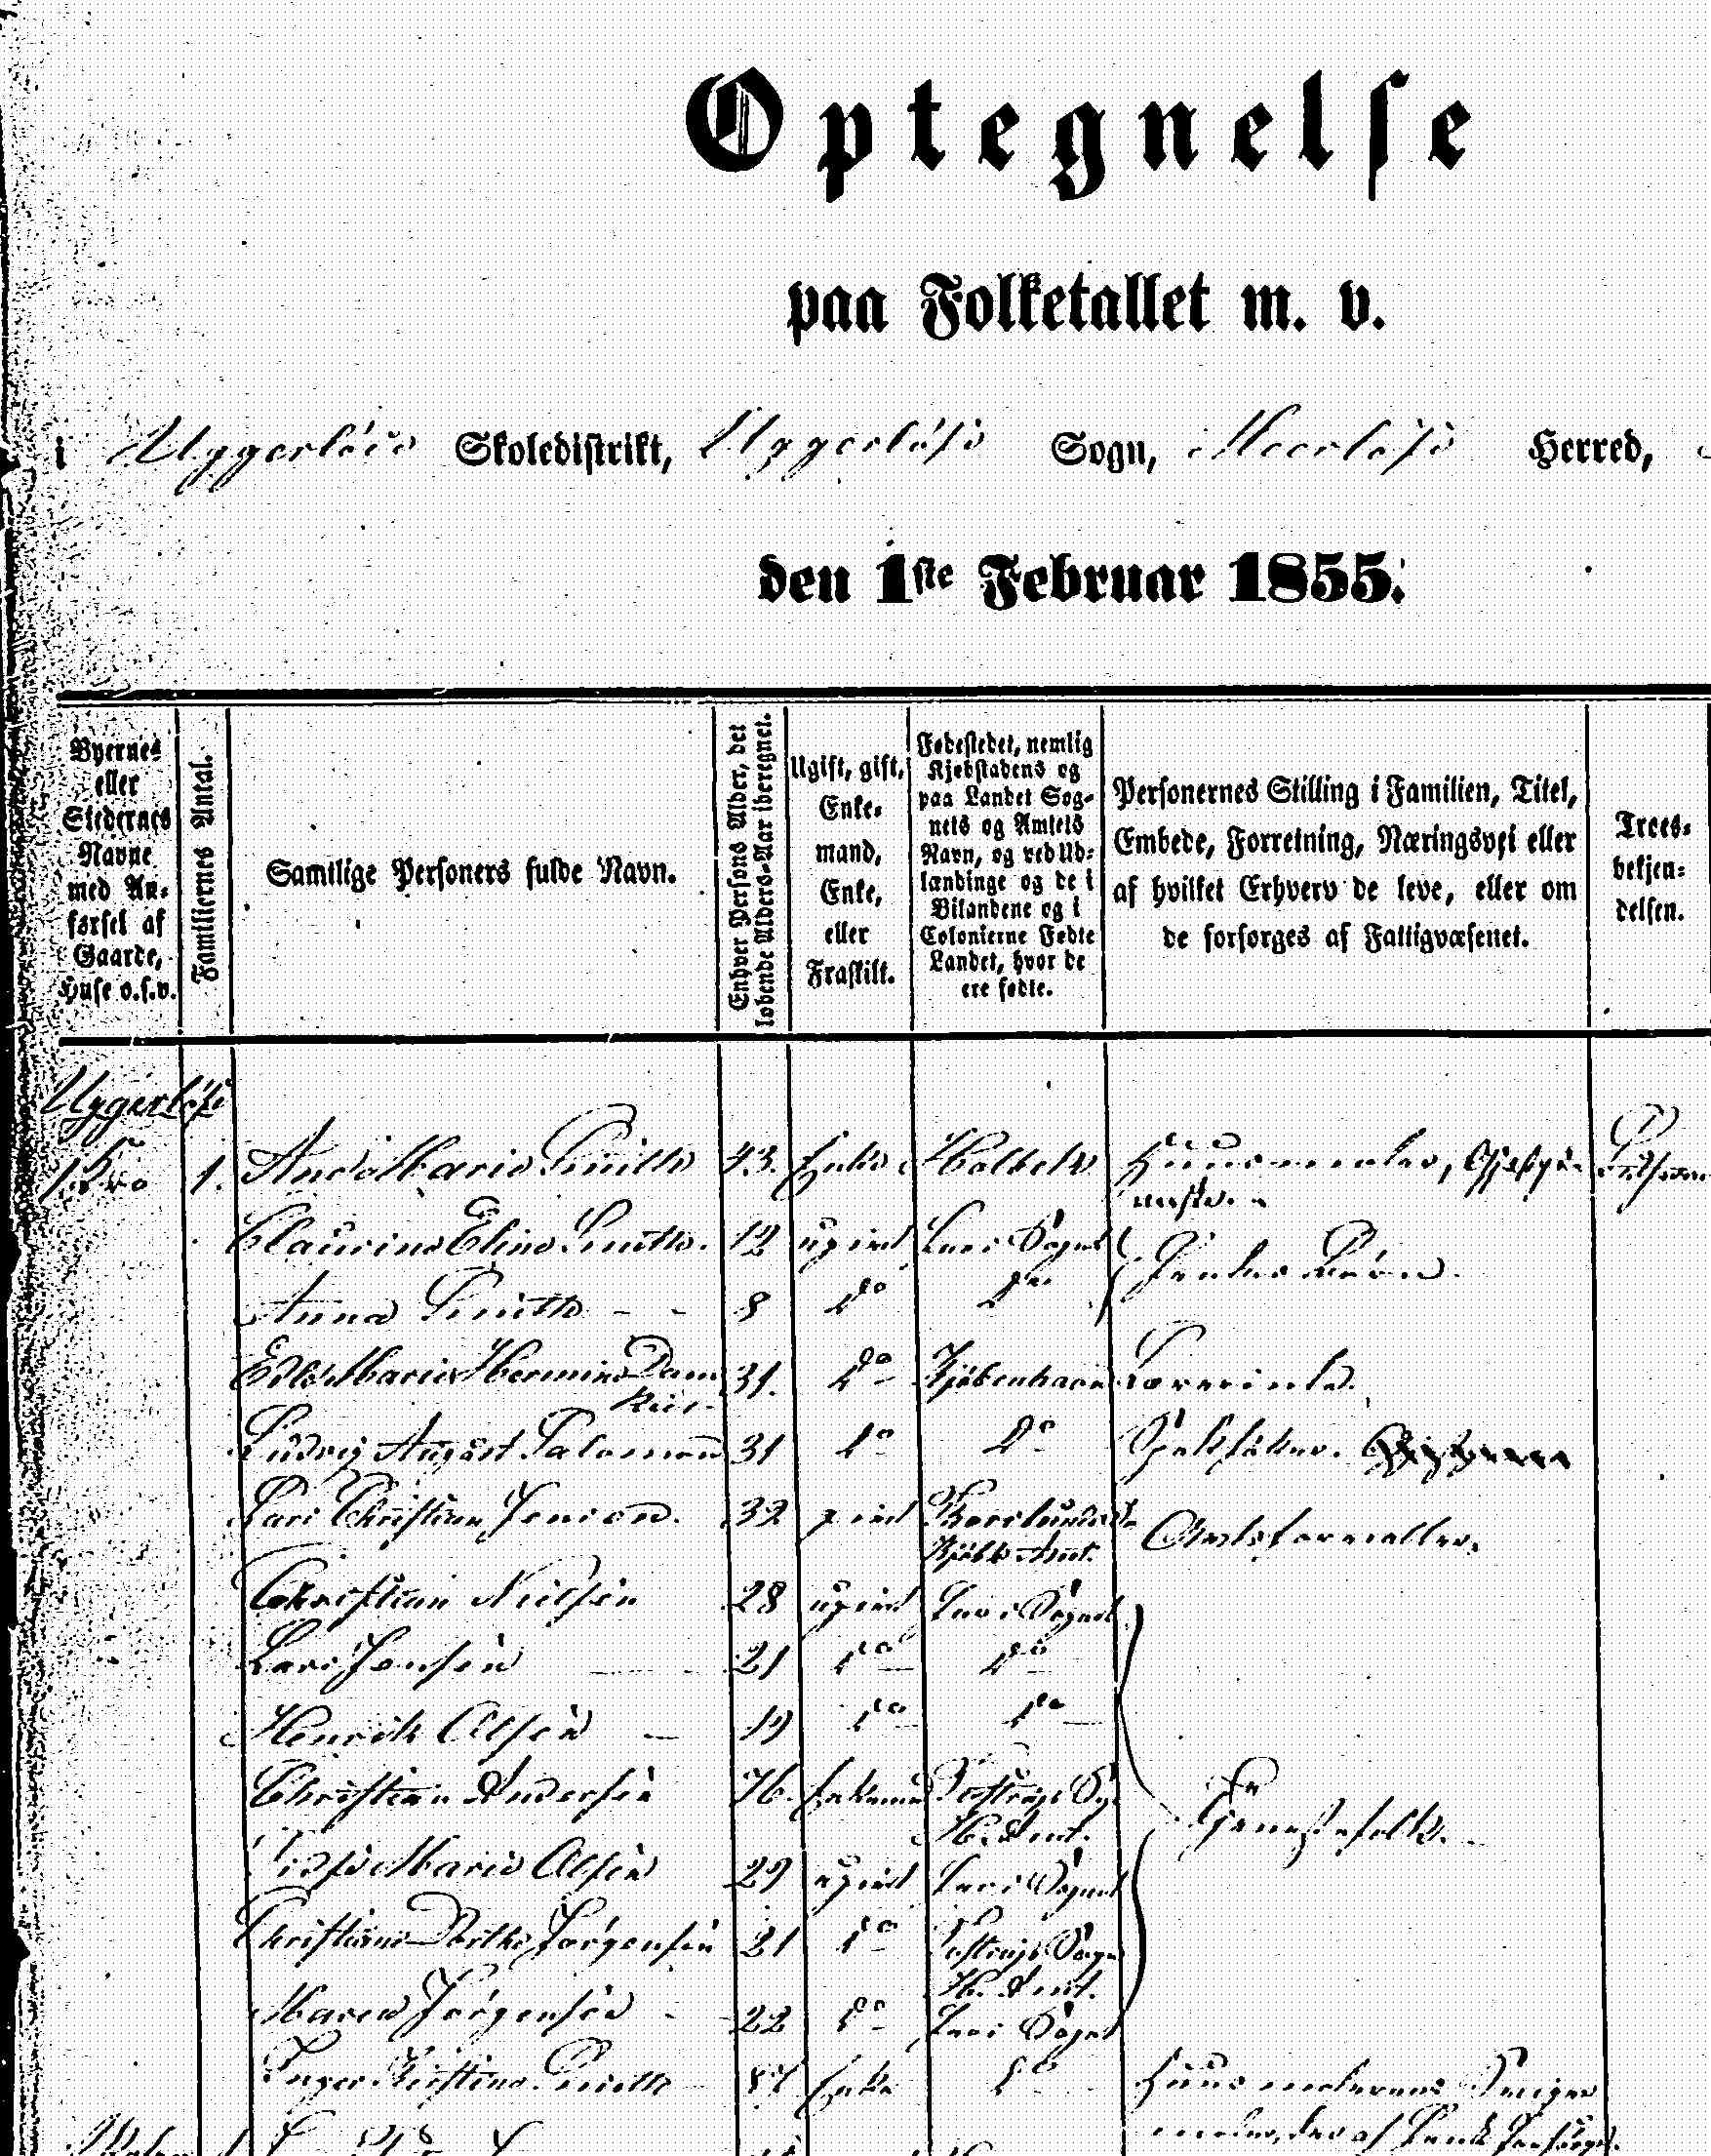 Optegnelse
paa Folketallet m. v.
i Uggerløse Skoledistrikt, Uggerløse Sogn, Meerløse Herred,
den 1ste Februar 1855.
Byernes
eller
Stedernes
Navne
med An-
førsel af
Gaarde,
Huse o.s.v.
Familiernes Antal.
Samtlige Personers fulde Navn.
Enhver Persons Alder, det
løbende Alders-Aar iberegnet.
Ugift, gift,
Enke-
mand,
Enke,
eller
Fraskilt.
Fødestedet, nemlig
Kjøbstadens og
paa Landet Sog-
nets og Amtets
Navn, og ved Ud-
lændinge og de i
Bilandene og i
Colonierne Fødte
Landet, hvor de
ere fødte.
Personernes Stilling i Familien, Titel,
Embede, Forretning, Næringsvei eller
af hvilket Erhverv de leve, eller om
de forsørges af Fattigvæsenet.
Troes-
bekjen-
delsen.
Uggerløse
Kro 1. Ane Marie Smith 43. Enke Holbek Huusmoder,
Claurine Eline Smith. 12 ugivt Her i Sognet
Anna Smith 8 do do
Marie Hermine 31. do Kjøbenhavn
Ludvig August Salomon 31 do do
Lars Christian Jensen. 32 givt
Kjøbh. Amt.
Christian Nielsen 28 ugivt Her i Sognet
Lars Jensen 21 do do
Henrik Olsen 19 do do
Christian Andersen 76. Enkemand
H. Amt. Tjenestefolk.
Marie Olsen 29 ugivt Her i Sognet
Christiane Dorthe Jørgensen 21 do
H. Amt.
Maren Jørgensen 22 do Her i Sognet
Inger Kirstine Smith 87 Enke do Huusmoderens Sviger